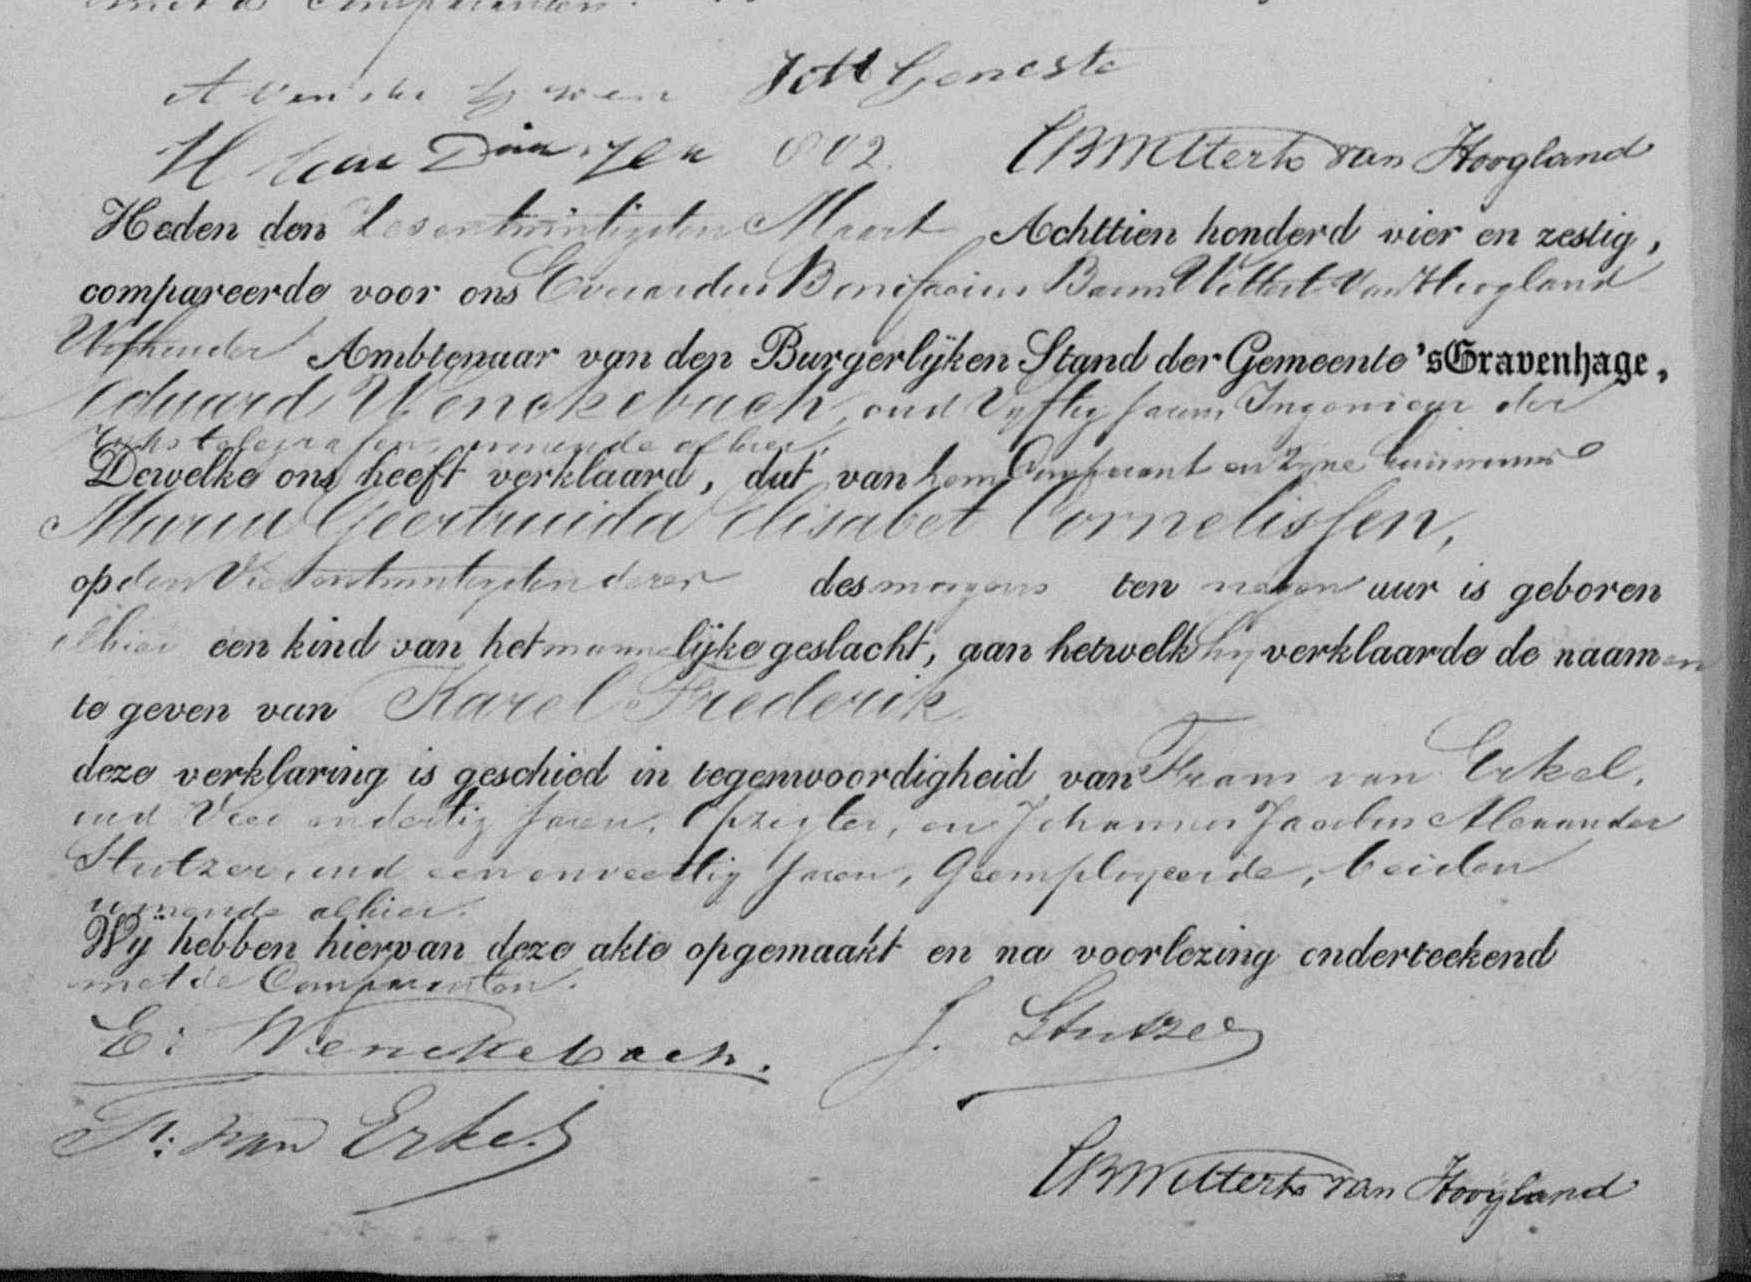 met de Comparanten.
JM Geneste
H van 802. EBWittert van Hoogland
Heden den Zesentwintigsten Maart Achttien honderd vier en zestig,
compareerde voor ons Everardus Bonifacius Baron Wittert Van Hoogland
Wethouder Ambtenaar van den Burgerlijken Stand der Gemeente 'sGravenhage,
Eduard Wenckebach, oud Vyftig jaren, Ingenieur der
Ryks telegrafen, wonende alhier,
Dewelke ons heeft verklaard, dat van hem Comparant en zyne huisvrouw
Maria Geertruida Elisabet Cornelissen,
op den Vierentwintigsten dezer des morgens ten negen uur is geboren
alhier een kind van het mannelijke geslacht, aan hetwelk hij verklaarde de naamen
te geven van Karel Frederik.
deze verklaring is geschied in tegenwoordigheid van Frans van Erkel,
oud Vier en dertig jaren, Opzigter, en Johannes Jacobus Alexander
Stutzer, oud een en veertig jaren, Geemployeerde, beiden
wonende alhier.
Wij hebben hiervan deze akte opgemaakt en na voorlezing onderteekend
met de Comparanten.
E: Wenckebach. J. Stutzer
Fr: van Erkel
EBWittert van Hoogland